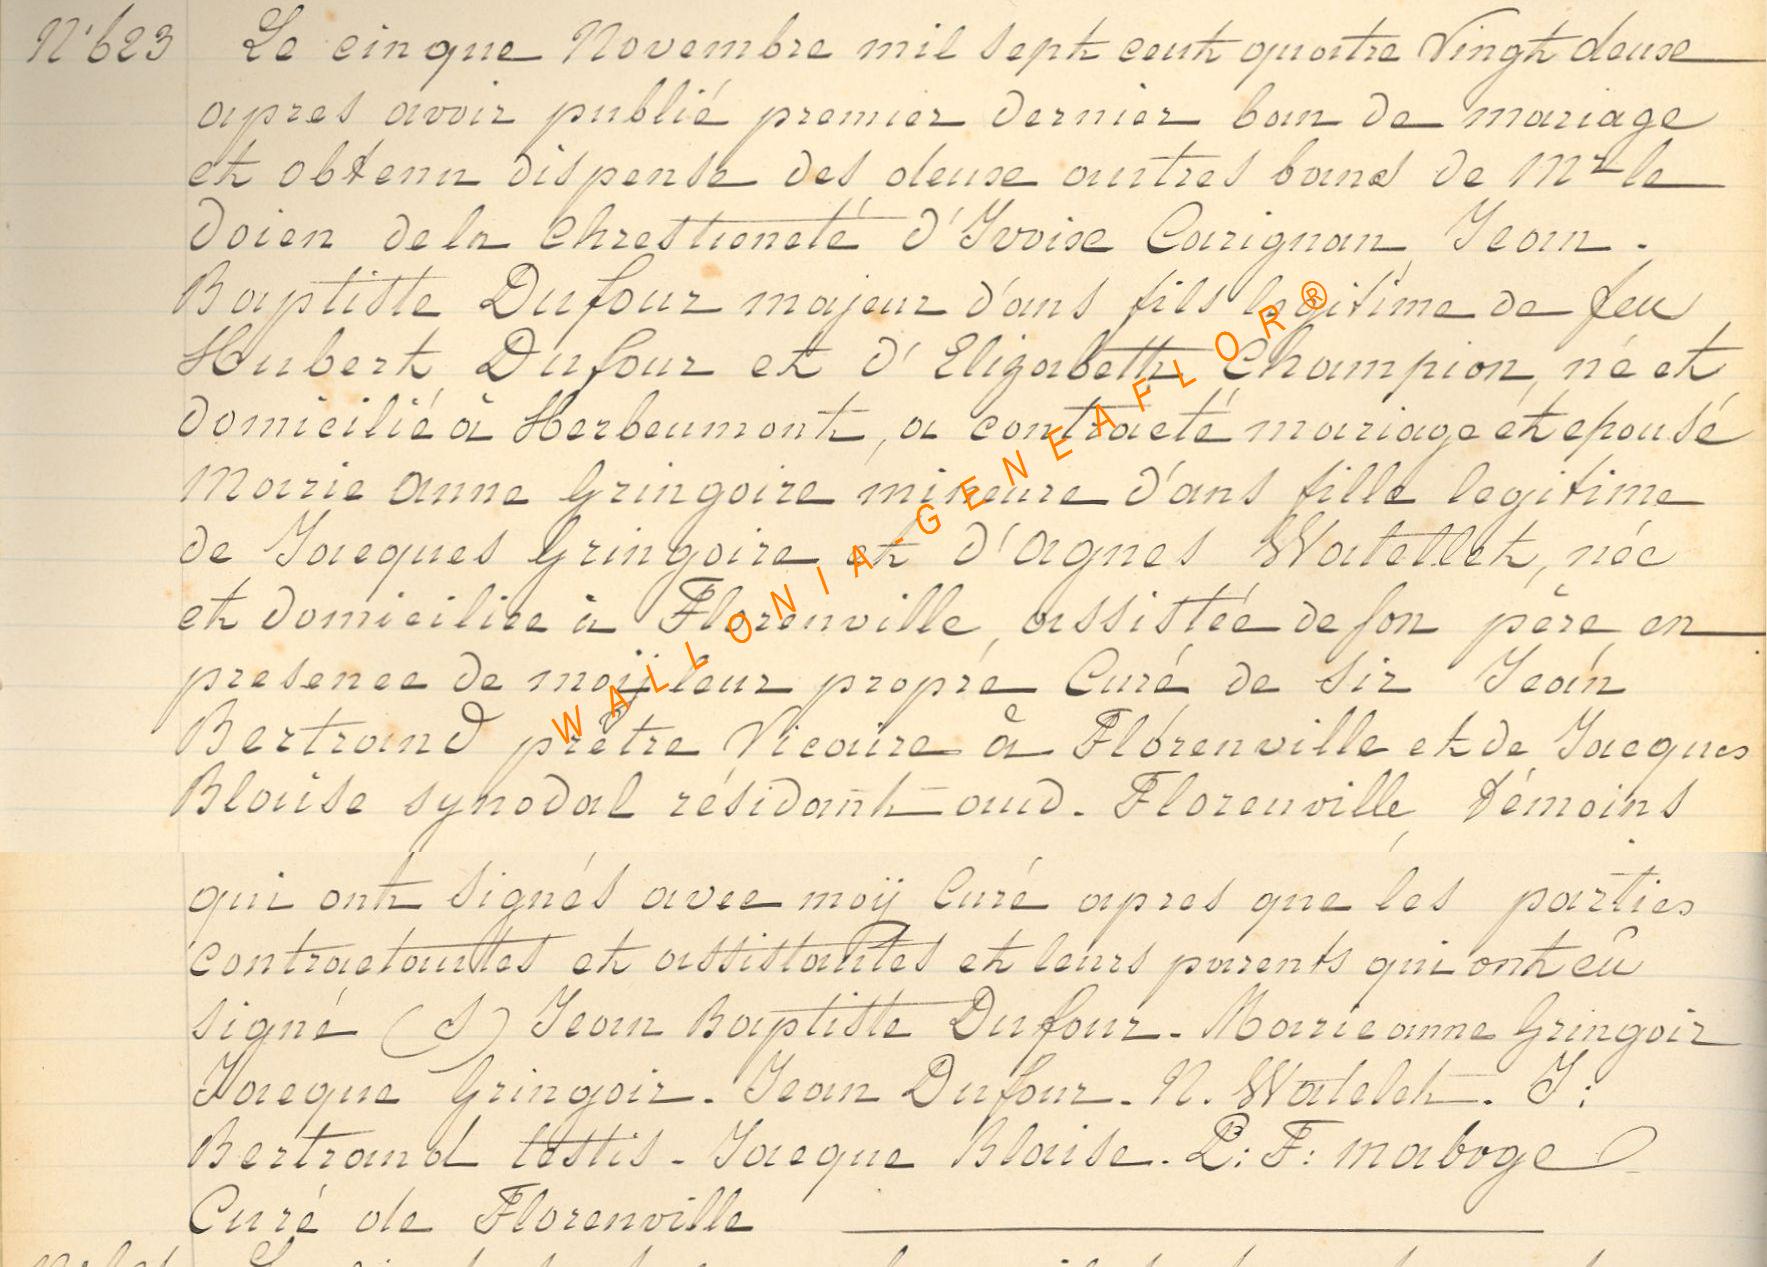 N° 623 Le cinque Novembre mil sept cent quatre Vingt deuxe
apres avoir publié premier dernier ban de mariage
et obtenu dispense des deuxe autres bans de Mr le
Doien de la Chrestioneté d'Yvoixe Carignan Jean.
Baptiste Dufour majeur d'ans fils legitime de feu
Hubert Dufour et d'Elizabetth Champion, né et
domicilié à Herbeumont, a contracté mariage et epousé
Marie anne Gringoire mineure d'ans fille legitime
de Jacques Gringoire et d'Agnes Watellet, née
et domiciliée à Florenville, assistée de son père, en
presence de moÿ leur propre Curé de Sir Jean
Bertrand prêtre Vicaire à Florenville et de Jacques
Blaise synodal résidant aud. Florenville témoins
qui ont signés avec moÿ Curé apres que les parties
contractantes et assistantes et leurs parents qui ont eû
signé (S) Jean Baptiste Dufour. Marie anne Gringoir
Jacque Gringoir. Jean Dufour. N. Watelet. J:
Bertrand testis. Jacque Blaise. P: F: maboge
Curé de Florenville
WALLONIA-GENEAFLOR®